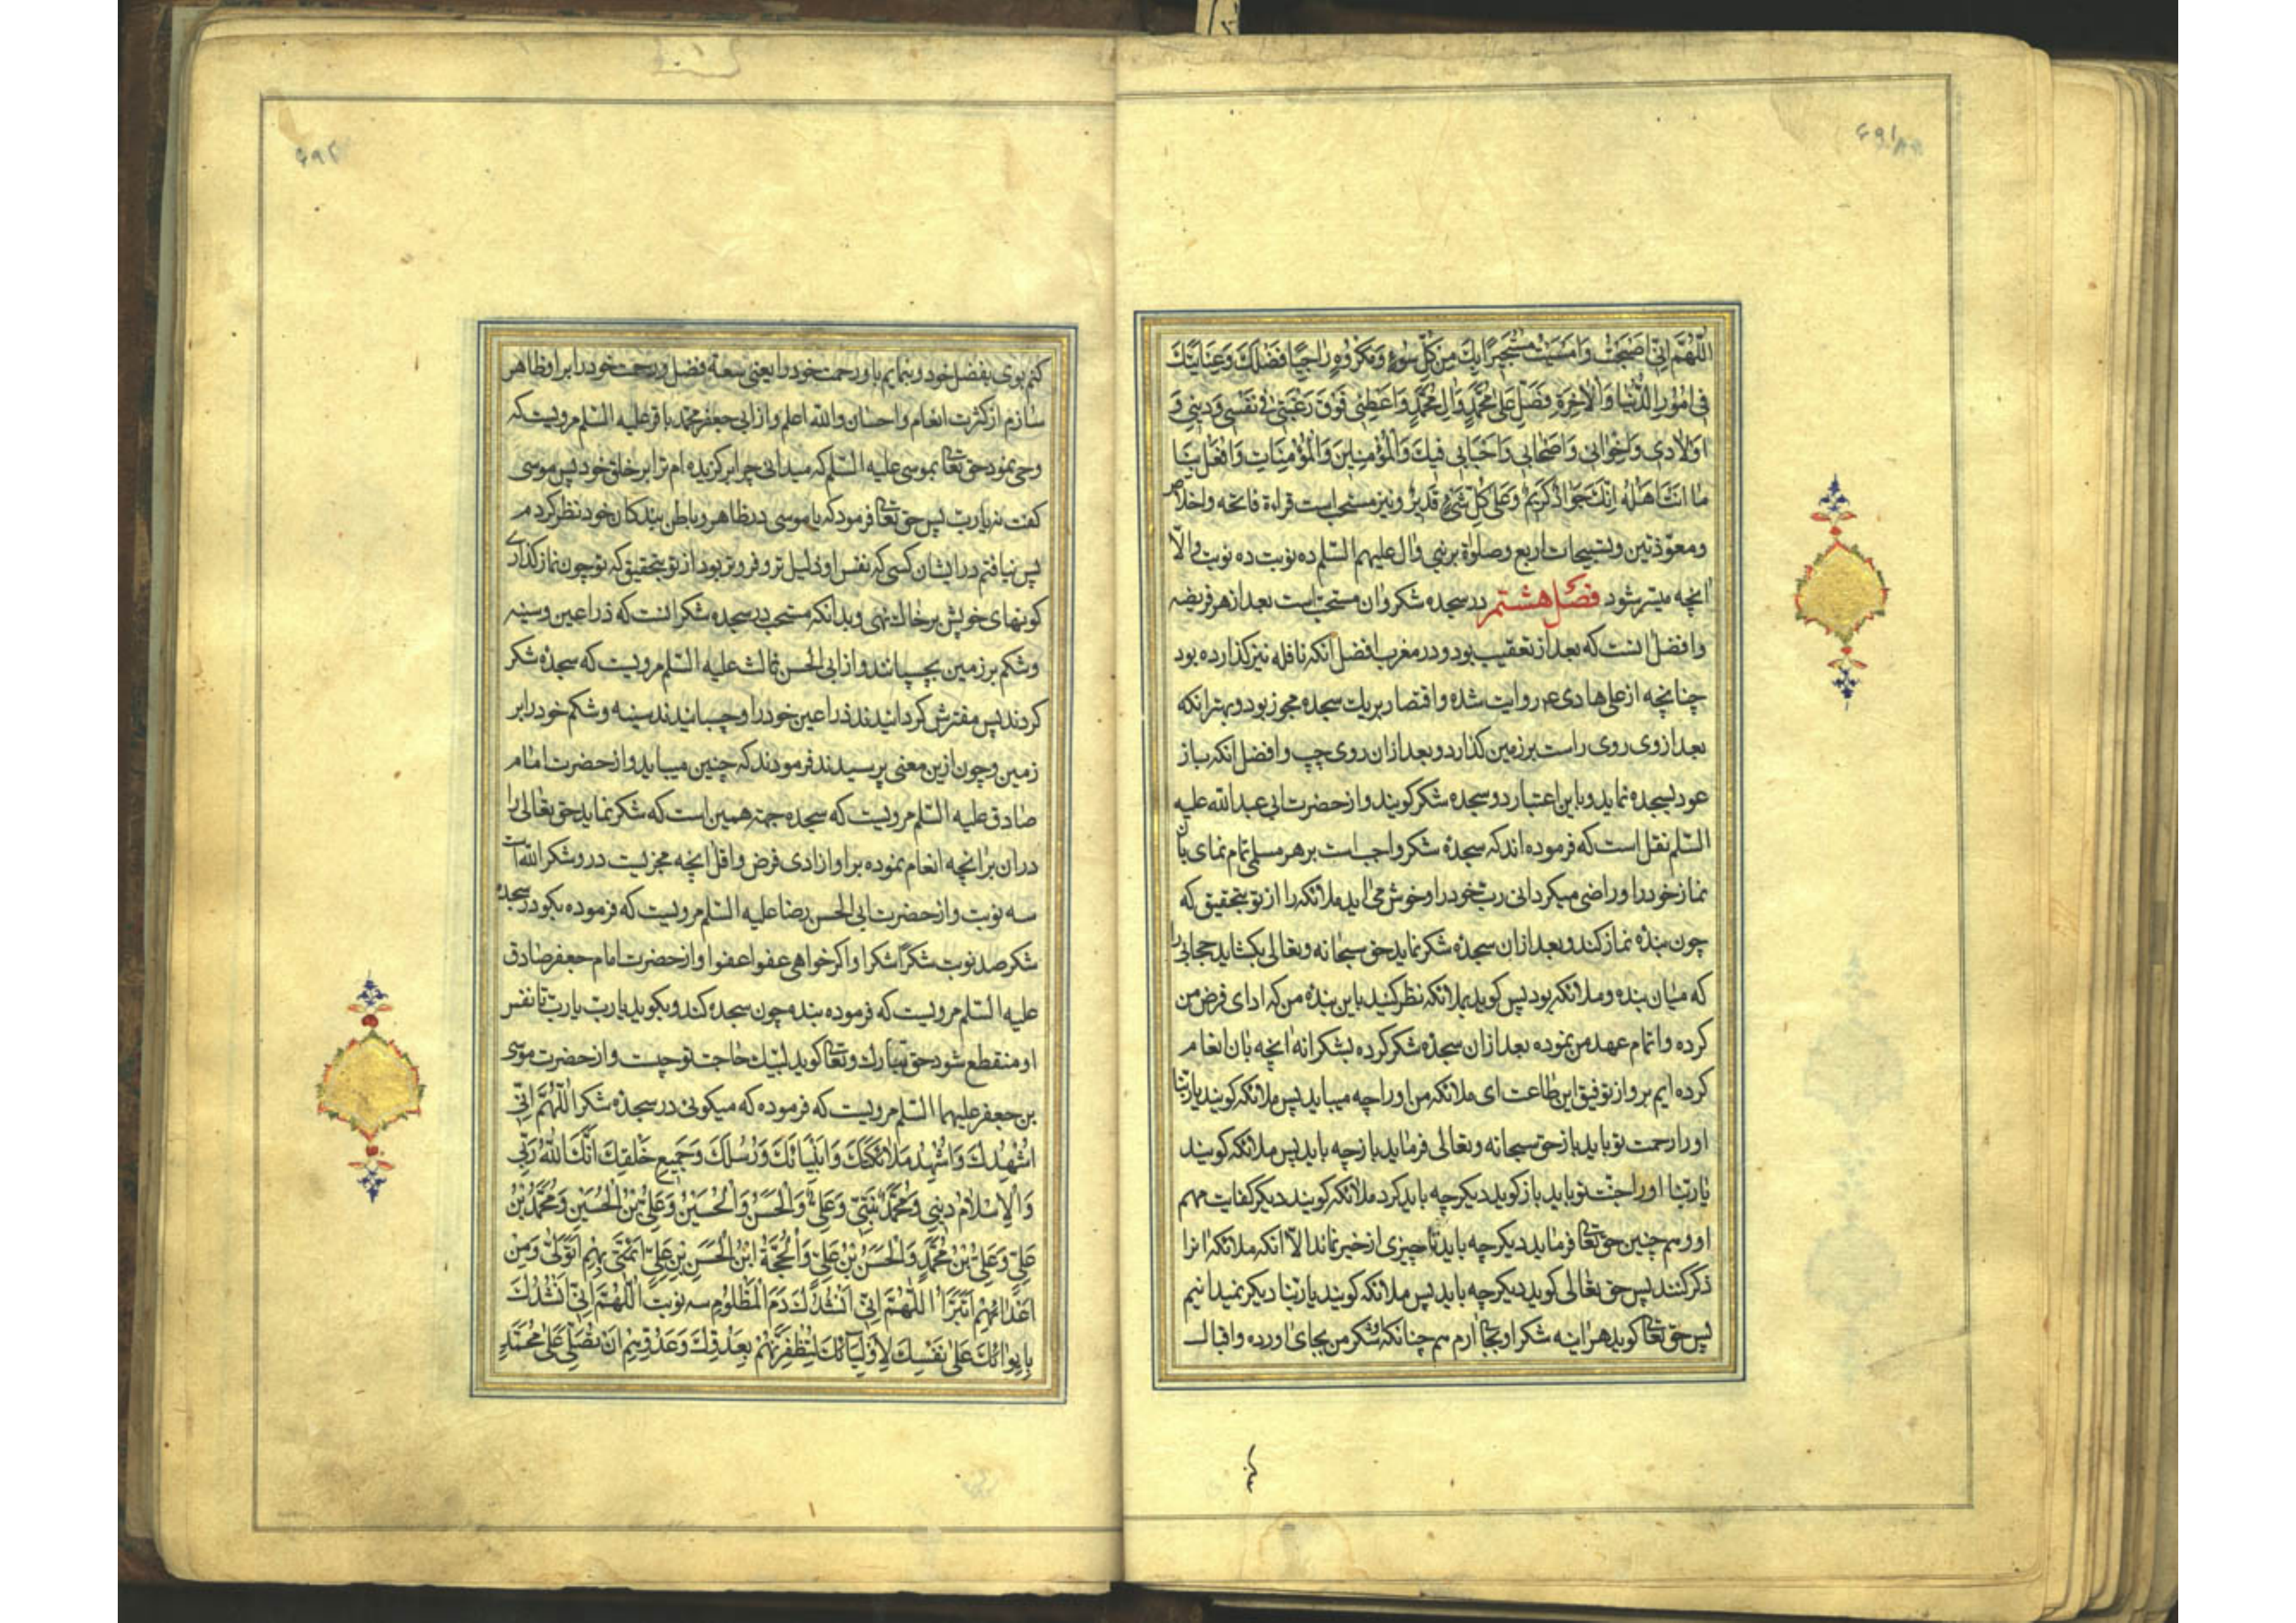 اللّهُمَّ اِنّی اَصبَحتُ وَاَمسَیتُ مُستَجیراً بِكَ مِن كُلِّ سُوءٍ وَمَكرُوهٍ رٰاجِیًا فَضلَكَ وَعِنَایَتَكَ
فی اُمُورِ الدُّنیَا وَالاٰخِرَةِ فَصَلِّ عَلیٰ مُحَمَّدٍ وَاٰلِ مُحَمَّدٍ وَاَعطِنی فَوقَ رَغبَتی فی نَفسی وَدینی وَ
اَولٰادی وَاِخوٰانی وَاَصحٰابی وَاَحبٰابی فیكَ وَالمُؤمِنینَ وَالمُؤمِنَاتِ وَافعَل بِنَا
مٰا اَنتَ اَهلُهُ اِنَّكَ جَوٰادٌ كَریمٌ وَعَلیٰ كُلِّ شَیءٍ قَدیرٌ ونیز مستحب است قراءة فاتحه واخلاص
ومعوّذتین وتسبیحات اربع وصلوٰة بر نبی واٰل علیهم السّلم ده نوبت ده نوبت والّا
اٰنچه میسّر شود فصل هشتم در سجده شكر واٰن مستحبّ است بعد از هر فریضه
وافضل اٰنست كه بعد از تعقیب بود ودر مغرب افضل اٰنكه نافله نیز كذارده بود
چنانچه از علی هادی ع روایت شده واقتصار بر یك سجده مجوز بود وبهتر انكه
بعد از وی روی راست بر زمین كذارد وبعد ازان روی چپ وافضل انكه باز
عود بسجده نماید وباین اعتبار دو سجده شكر كویند واز حضرت ابی عبدالله علیه
السّلم نقل است كه فرموده اند كه سجدهٔ شكر واجب است بر هر مسلمی تمام نمای باٰن
نماز خود را وراضی میكردانی ربّ خود را وخوش می اید ملائكه را از تو بتحقیق كه
چون بندهٔ نماز كند وبعد ازان سجدهٔ شكر نماید حق سبحانه وتعالی بكشاید حجابی را
كه میان بنده وملائكه بود پس كوید بملائكه نظر كنید باین بندهٔ من كه ادای فرض من
كرده واتمام عهد من نموده بعد ازان سجدهٔ شكر كرده بشكرانه اٰنچه باٰن انعام
كرده ایم بر او از توفیق این طاعت ای ملائكه من اورا چه میباید پس ملائكه كویند یا ربّنا
اورا رحمت تو باید باز حق سبحانه وتعالی فرماید باز چه باید پس ملائكه كویند
یا ربّنا اورا جنّت تو باید باز كوید دیكر چه باید كرد ملائكه كویند دیكر كفایت مهم
او وهم چنین حق تعالی فرماید دیكر چه باید تا چیزی از خیر نماند الّا انكه ملائكه انرا
ذكر كنند پس حق تعالی كوید دیكر چه باید پس ملائكه كویند یا ربّنا دیكر نمیدانیم
پس حق تعالی كوید هر اینه شكر او بجا ارم هم چنانكه او شكر من بجای اورده واقبال
كنم بوی بفضل خود وبنمایم باو رحمت خود را یعنی سعة فضل ورحمت خود را بر او ظاهر
سازم از كثرت انعام واحسان والله اعلم واز ابی جعفر محمد باقر علیه السّلم مرویست كه
وحی نمود حق تعالی بموسی علیه السّلم كه میدانی چرا بركزیده ام ترا بر خلق خود پس موسی
كفت نه یا ربّ پس حق تعالی فرمود كه یا موسی در ظاهر وباطن بندكان خود نظر كردم
پس نیافتم در ایشان كسی كه نفس او ذلیل تر وفروتر بود از تو بتحقیق كه تو چون نماز كذاری
كونهای خویش بر خاك نهی وبدانكه مستحب در سجده شكر انست كه ذراعین وسینه
وشكم بر زمین بچسپانند واز ابی الحسن ثالث علیه السّلم مرویست كه سجدهٔ شكر
كردند پس مفترش كردانیدند ذراعین خود را وچسبانیدند سینه وشكم خود را بر
زمین وچون ازین معنی پرسیدند فرمودند كه چنین میباید واز حضرت امام
صادق علیه السّلم مرویست كه سجده جهة همین است كه شكر نماید حق تعالی را
دران بر انچه انعام نموده بر او از ادی فرض واقل انچه مجزیست درو شكرا لله است
سه نوبت واز حضرت ابی الحسن رضا علیه السّلم مرویست كه فرموده بكو در سجدهٔ
شكر صد نوبت شكرًا شكرا واكر خواهی عفوا عفوا واز حضرت امام جعفر صادق
علیه السّلم مرویست كه فرموده بنده چون سجده كند وبكوید یا ربّ یا ربّ تا نفس
او منقطع شود حق تبارك وتعالی كوید لبّیك حاجت تو چیست واز حضرت موسی
بن جعفر علیهما السّلم مرویست كه فرموده كه میكوئی در سجدهٔ شكر اَللّٰهُمَّ اِنّی
اُشهِدُكَ وَاُشهِدُ مَلٰائِكَتَكَ وَاَنبِیٰائَكَ وَرُسُلَكَ وَجَمیعِ خَلقِكَ اَنَّكَ اللّٰهُ رَبّی
وَالاِسلٰامُ دینی وَمُحَمَّدٌ نَبِیّی وَعَلِیٌّ وَالحَسَنُ وَالحُسَینُ وَعَلِیُّ بنُ الحُسَینِ وَمُحَمَّدُ بنُ
عَلِیٍّ وَعَلِیُّ بنُ مُحَمَّدٍ وَالحَسَنُ بنُ عَلِیٍّ وَالحُجَّةُ ابنُ الحَسَنِ بنِ عَلِیٍّ اَئِمَّتی بِهِم اَتَوَلّٰی وَمِن
اَعدٰائِهِم اَتَبَرَّأُ اَللّٰهُمَّ اِنّی اَنشُدُكَ دَمَ المَظلُومِ سه نوبت اَللّٰهُمَّ اِنّی اَنشُدُكَ
بِاِیوٰائِكَ عَلیٰ نَفسِكَ لِاَولِیٰائِكَ لِتُظفِرَنَّهُم بِعَدُوِّكَ وَعَدُوِّهِم اَن تُصَلِّیَ عَلیٰ مُحَمَّدٍ